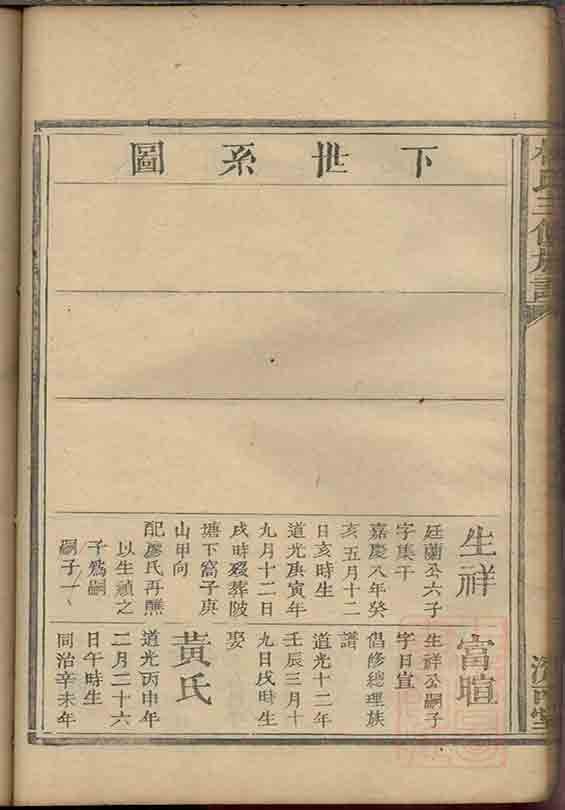 下世系圖
生祥
廷蘭公六子
字集干
嘉慶八年癸
亥五月十二
日亥時生
道光庚寅年
九月十二日
戌時歿葬陂
塘下窩子庚
山甲向
配廖氏再醮
以生禎之
子爲嗣
嗣子一
富暄
生祥公嗣子
字日宣
倡修總理族
譜
道光十二年
壬辰三月十
九日戌時生
娶
黃氏
道光丙申年
二月二十六
日午時生
同治辛未年
氏三修族譜
堂